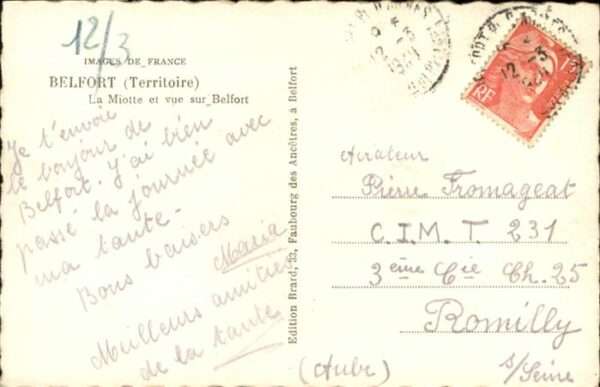 12/3
IMAGES DE FRANCE
BELFORT (Territoire)
La Miotte et vue sur Belfort
Je t'envoie
le bonjour de
Belfort. J'ai bien
passé la journée avec
ma tante.
Bons baisers
Maria
Meilleurs amitiés
de la tante
Edition Brard, 32, Faubourg des Ancêtres, à Belfort
12 -3
12 -3
RF
Aviateur
Pierre Fromageat
C.I.M.T. 231
3ème Cie Ch. 25
Romilly
s/Seine
(Aube)